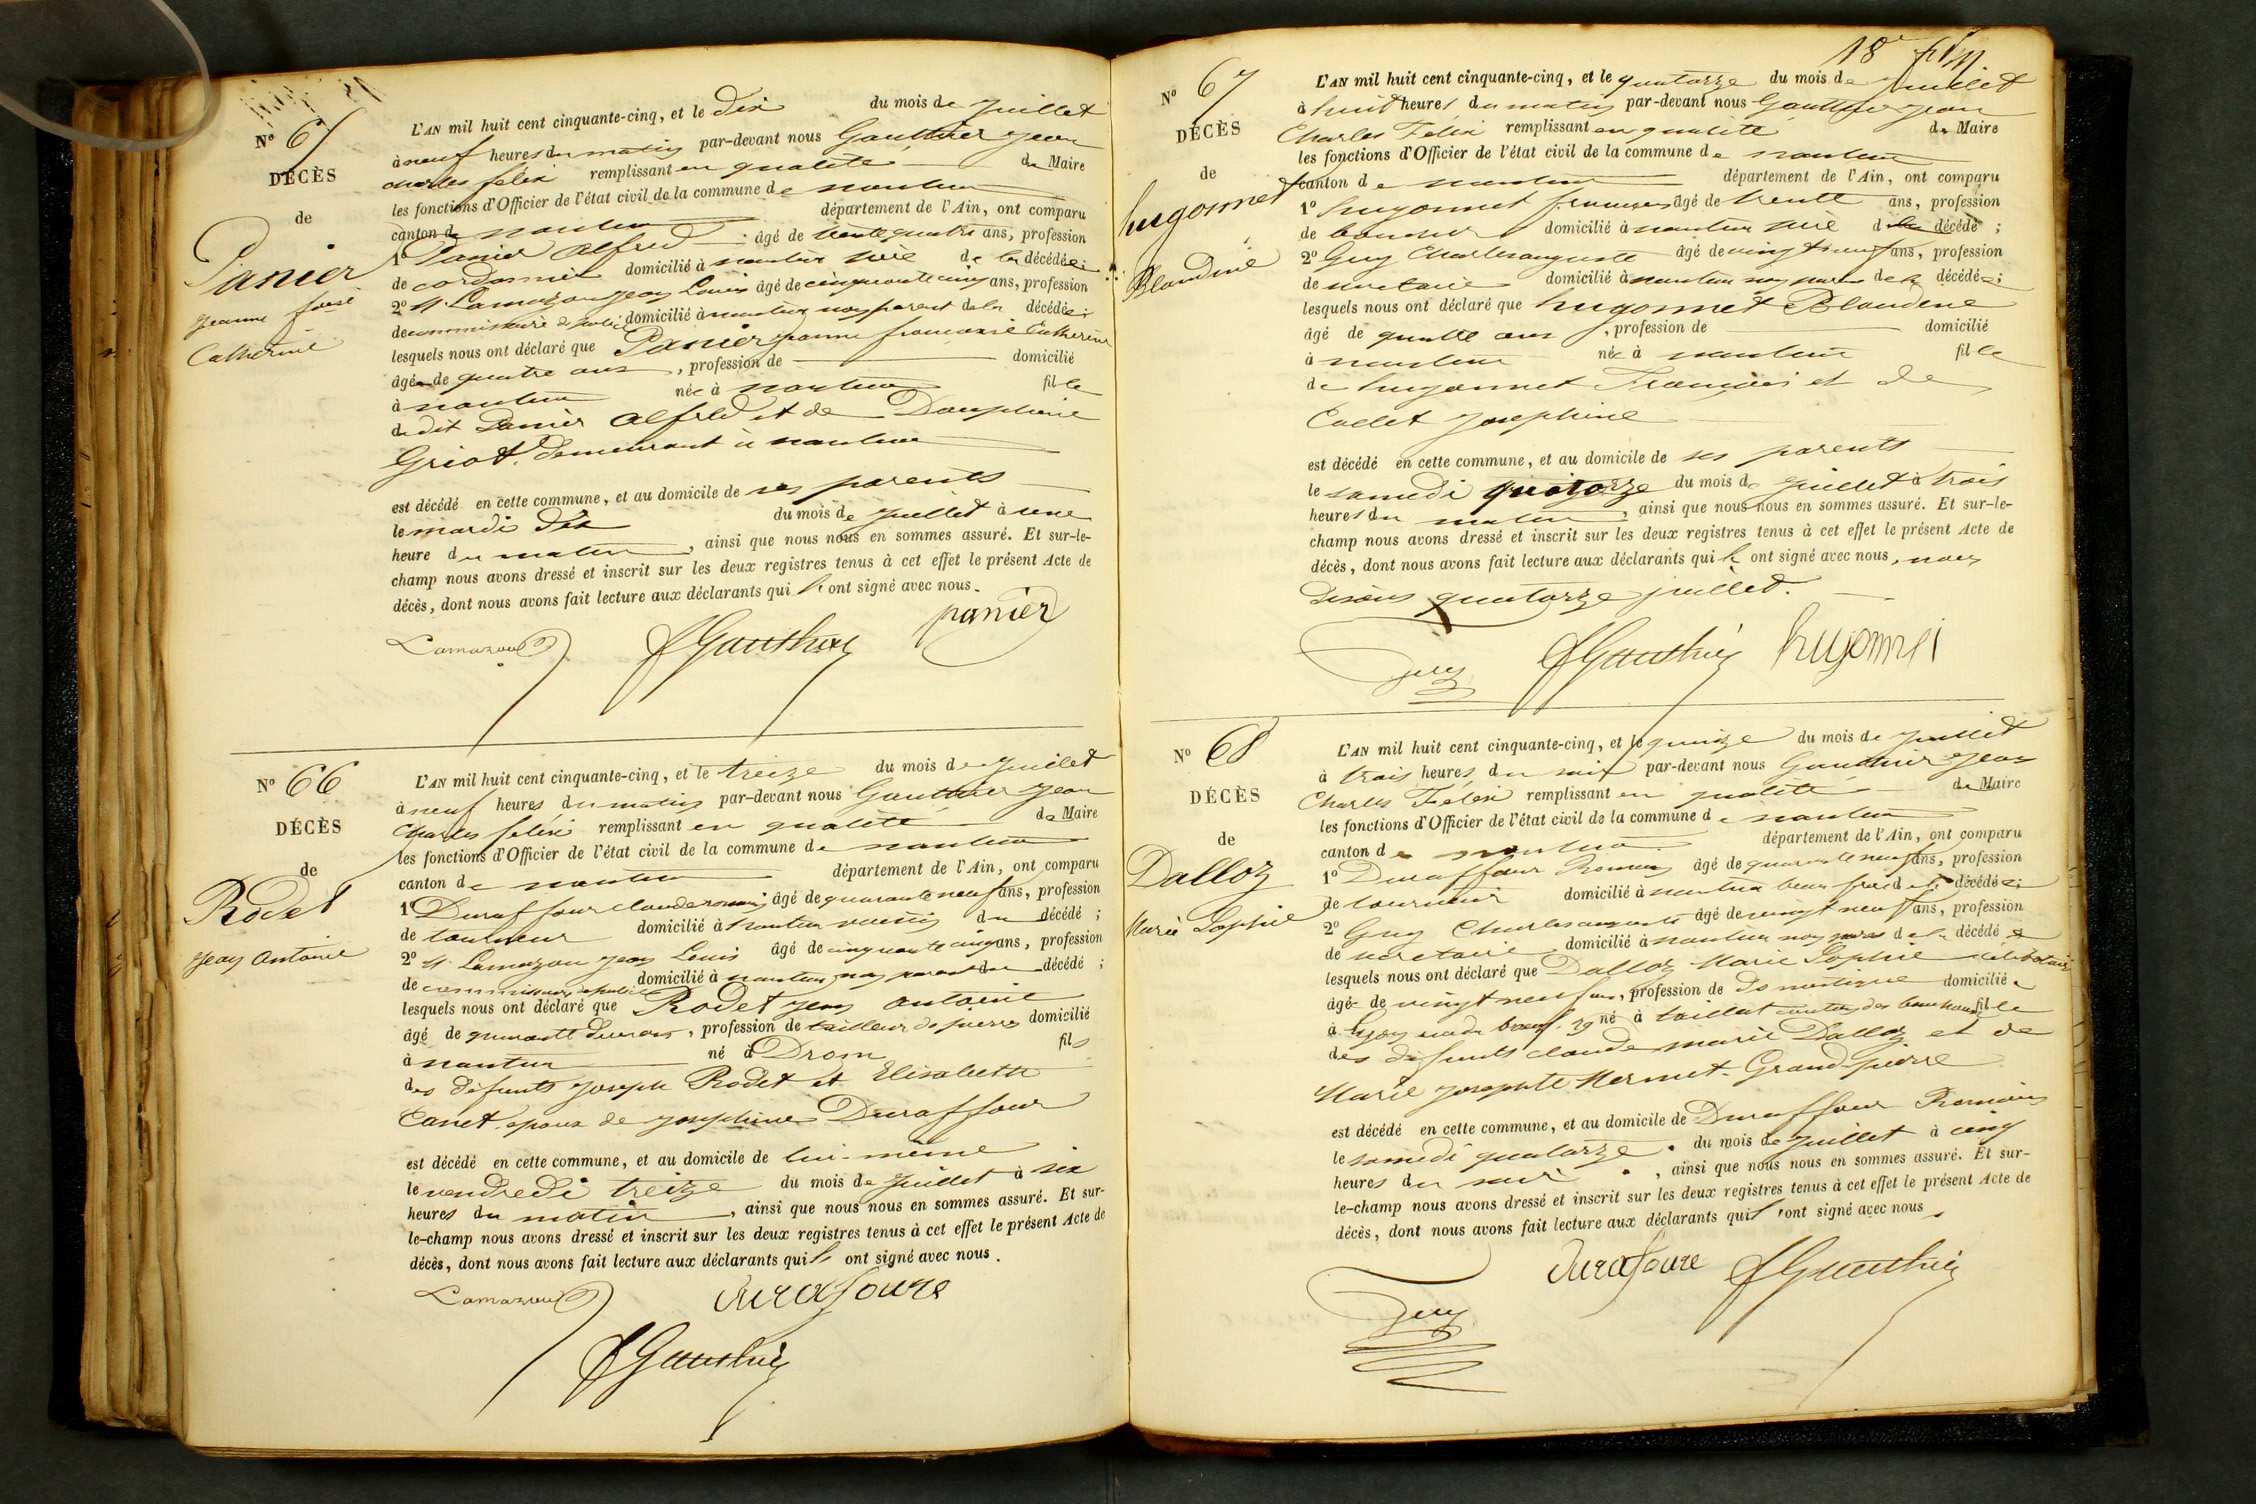 N° 65
DÉCÈS
de
Panier
Jeanne
Catherine
L'AN mil huit cent cinquante-cinq, et le dix du mois de juillet
à neuf heures du matin par-devant nous Gauthier Jean
charles felix remplissant en qualité de Maire
les fonctions d'Officier de l'état civil de la commune de nantua
canton de nantua département de l'Ain, ont comparu
1° Panier Alfred âgé de trente quatre ans, profession
de cordonnier domicilié à nantua père de la décédée;
2° M. Lamazou Jean Louis âgé de cinquante cinq ans, profession
de commissaire de police domicilié à nantua non parent de la décédée;
lesquels nous ont déclaré que Panier jeanne Catherine
âgée de quatre ans, profession de domicilié
à nantua née à nantua fille
du dit Panier Alfred et de Dauphine
Griot, demeurant à nantua
est décédé en cette commune, et au domicile de ses parents
le mardi dix du mois de juillet à une
heure du matin, ainsi que nous nous en sommes assuré. Et sur-le-
champ nous avons dressé et inscrit sur les deux registres tenus à cet effet le présent Acte de
décès, dont nous avons fait lecture aux déclarants qui l'ont signé avec nous.
Lamazou JGauthier panier
N° 66
DÉCÈS
de
Rodet
Jean Antoine
L'AN mil huit cent cinquante-cinq, et le treize du mois de juillet
à neuf heures du matin par-devant nous Gauthier Jean
Charles felix remplissant en qualité de Maire
les fonctions d'Officier de l'état civil de la commune de nantua
canton de nantua département de l'Ain, ont comparu
1° Duraffour claude romain âgé de quarante neuf ans, profession
de tourneur domicilié à nantua voisin du décédé;
2° M. Lamazou Jean Louis âgé de cinquante cinq ans, profession
de commissaire de police domicilié à nantua non parent du décédé;
lesquels nous ont déclaré que Rodet jean antoine
âgé de quarante deux ans, profession de tailleur de pierres domicilié
à nantua né à Drom fils
des défunts joseph Rodet et Elisabeth
Canet, epoux de josephine Duraffour
est décédé en cette commune, et au domicile de lui-même
le vendredi treize du mois de juillet à six
heures du matin, ainsi que nous nous en sommes assuré. Et sur-
le-champ nous avons dressé et inscrit sur les deux registres tenus à cet effet le présent Acte de
décès, dont nous avons fait lecture aux déclarants qui l'ont signé avec nous.
Lamazou durafoure
JGauthier
18
N° 67
DÉCÈS
de
hugonnet
Blandine
L'AN mil huit cent cinquante-cinq, et le quatorze du mois de juillet
à huit heures du matin par-devant nous Gauthier Jean
Charles Felix remplissant en qualité de Maire
les fonctions d'Officier de l'état civil de la commune de nantua
canton de nantua département de l'Ain, ont comparu
1° hugonnet françois âgé de trente ans, profession
de boucher domicilié à nantua père de la décédé;
2° Guy Charles auguste âgé de vingt neuf ans, profession
de secrétaire domicilié à nantua non parent de la décédée;
lesquels nous ont déclaré que hugonnet Blandine
âgé de quatre ans, profession de domicilié
à nantua née à nantua fille
de hugonnet François et de
Cadet josephine
est décédé en cette commune, et au domicile de ses parents
le samedi quatorze du mois de juillet à trois
heures du matin, ainsi que nous nous en sommes assuré. Et sur-le-
champ nous avons dressé et inscrit sur les deux registres tenus à cet effet le présent Acte de
décès, dont nous avons fait lecture aux déclarants qui l'ont signé avec nous, nous
disons quatorze juillet.
Guy JGauthier hugonnet
N° 68
DÉCÈS
de
Dalloz
Marie Sophie
L'AN mil huit cent cinquante-cinq, et le quinze du mois de juillet
à trois heures du soir par-devant nous Gauthier Jean
Charles Felix remplissant en qualité de Maire
les fonctions d'Officier de l'état civil de la commune de nantua
canton de nantua département de l'Ain, ont comparu
1° Duraffour Romain âgé de quarante neuf ans, profession
de tourneur domicilié à nantua beau frère de la décédée;
2° Guy Charles auguste âgé de vingt neuf ans, profession
de secrétaire domicilié à nantua non parent de la décédé
lesquels nous ont déclaré que Dalloz Marie Sophie célibataire
âgé de vingt neuf ans, profession de domestique domicilié
à Lyon rue du boeuf 29 né à taillat fille
des défunts claude marie Dalloz et de
Marie josephte Mermet-Grandpierre
est décédé en cette commune, et au domicile de Duraffour Romain
le samedi quatorze du mois de juillet à cinq
heures du soir, ainsi que nous nous en sommes assuré. Et sur-
le-champ nous avons dressé et inscrit sur les deux registres tenus à cet effet le présent Acte de
décès, dont nous avons fait lecture aux déclarants qui l'ont signé avec nous
Guy durafoure JGauthier